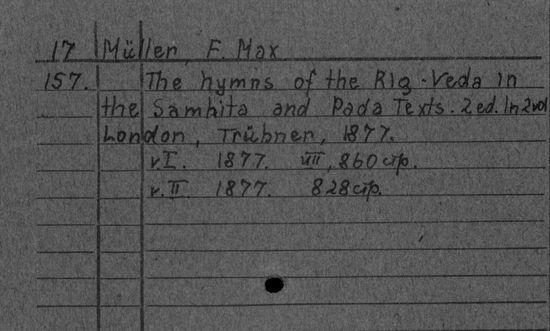 17 Müller, F. Max
157. The hymns of the Rig-Veda in
the Samhita and Pada Texts. 2 ed. In 2 vol
London, Trübner, 1877.
v. I. 1877. VIII, 860 стр.
v. II. 1877. 828 стр.